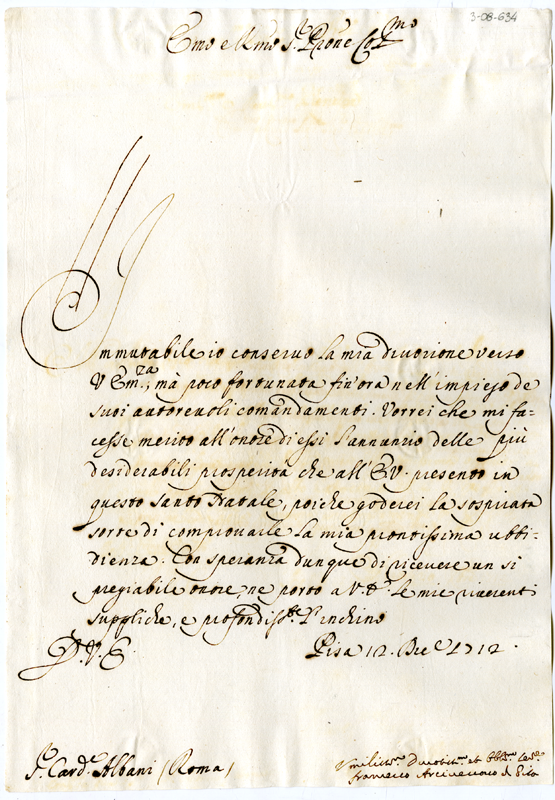 3-08-634
Emo e Rmo Sr. Prone Colmo
Immutabile io conservo la mia divozione verso
V Emza, mà poco fortunata fin'ora nell'impiego de
suoi autorevoli comandamenti. Vorrei che mi fa=
cesse merito all'onore di essi l'annunzio delle più
desiderabili prosperità che all'E.V. presento in
questo santo Natale, poiche goderei la sospirata
sorte di comprovarle la mia prontissima ubbi=
dienza. Con speranza dunque di ricevere un si
pregiabile onore, ne porto a V.E. le mie riverenti
suppliche, e profondisste. l'inchino
D. V. E.
Pisa 12. Bre 1712.
Sr. Carde Albani (Roma)
Umiliss.mo Devotiss.mo et Obb.mo Ser.e
Francesco Arcivescovo di Pisa